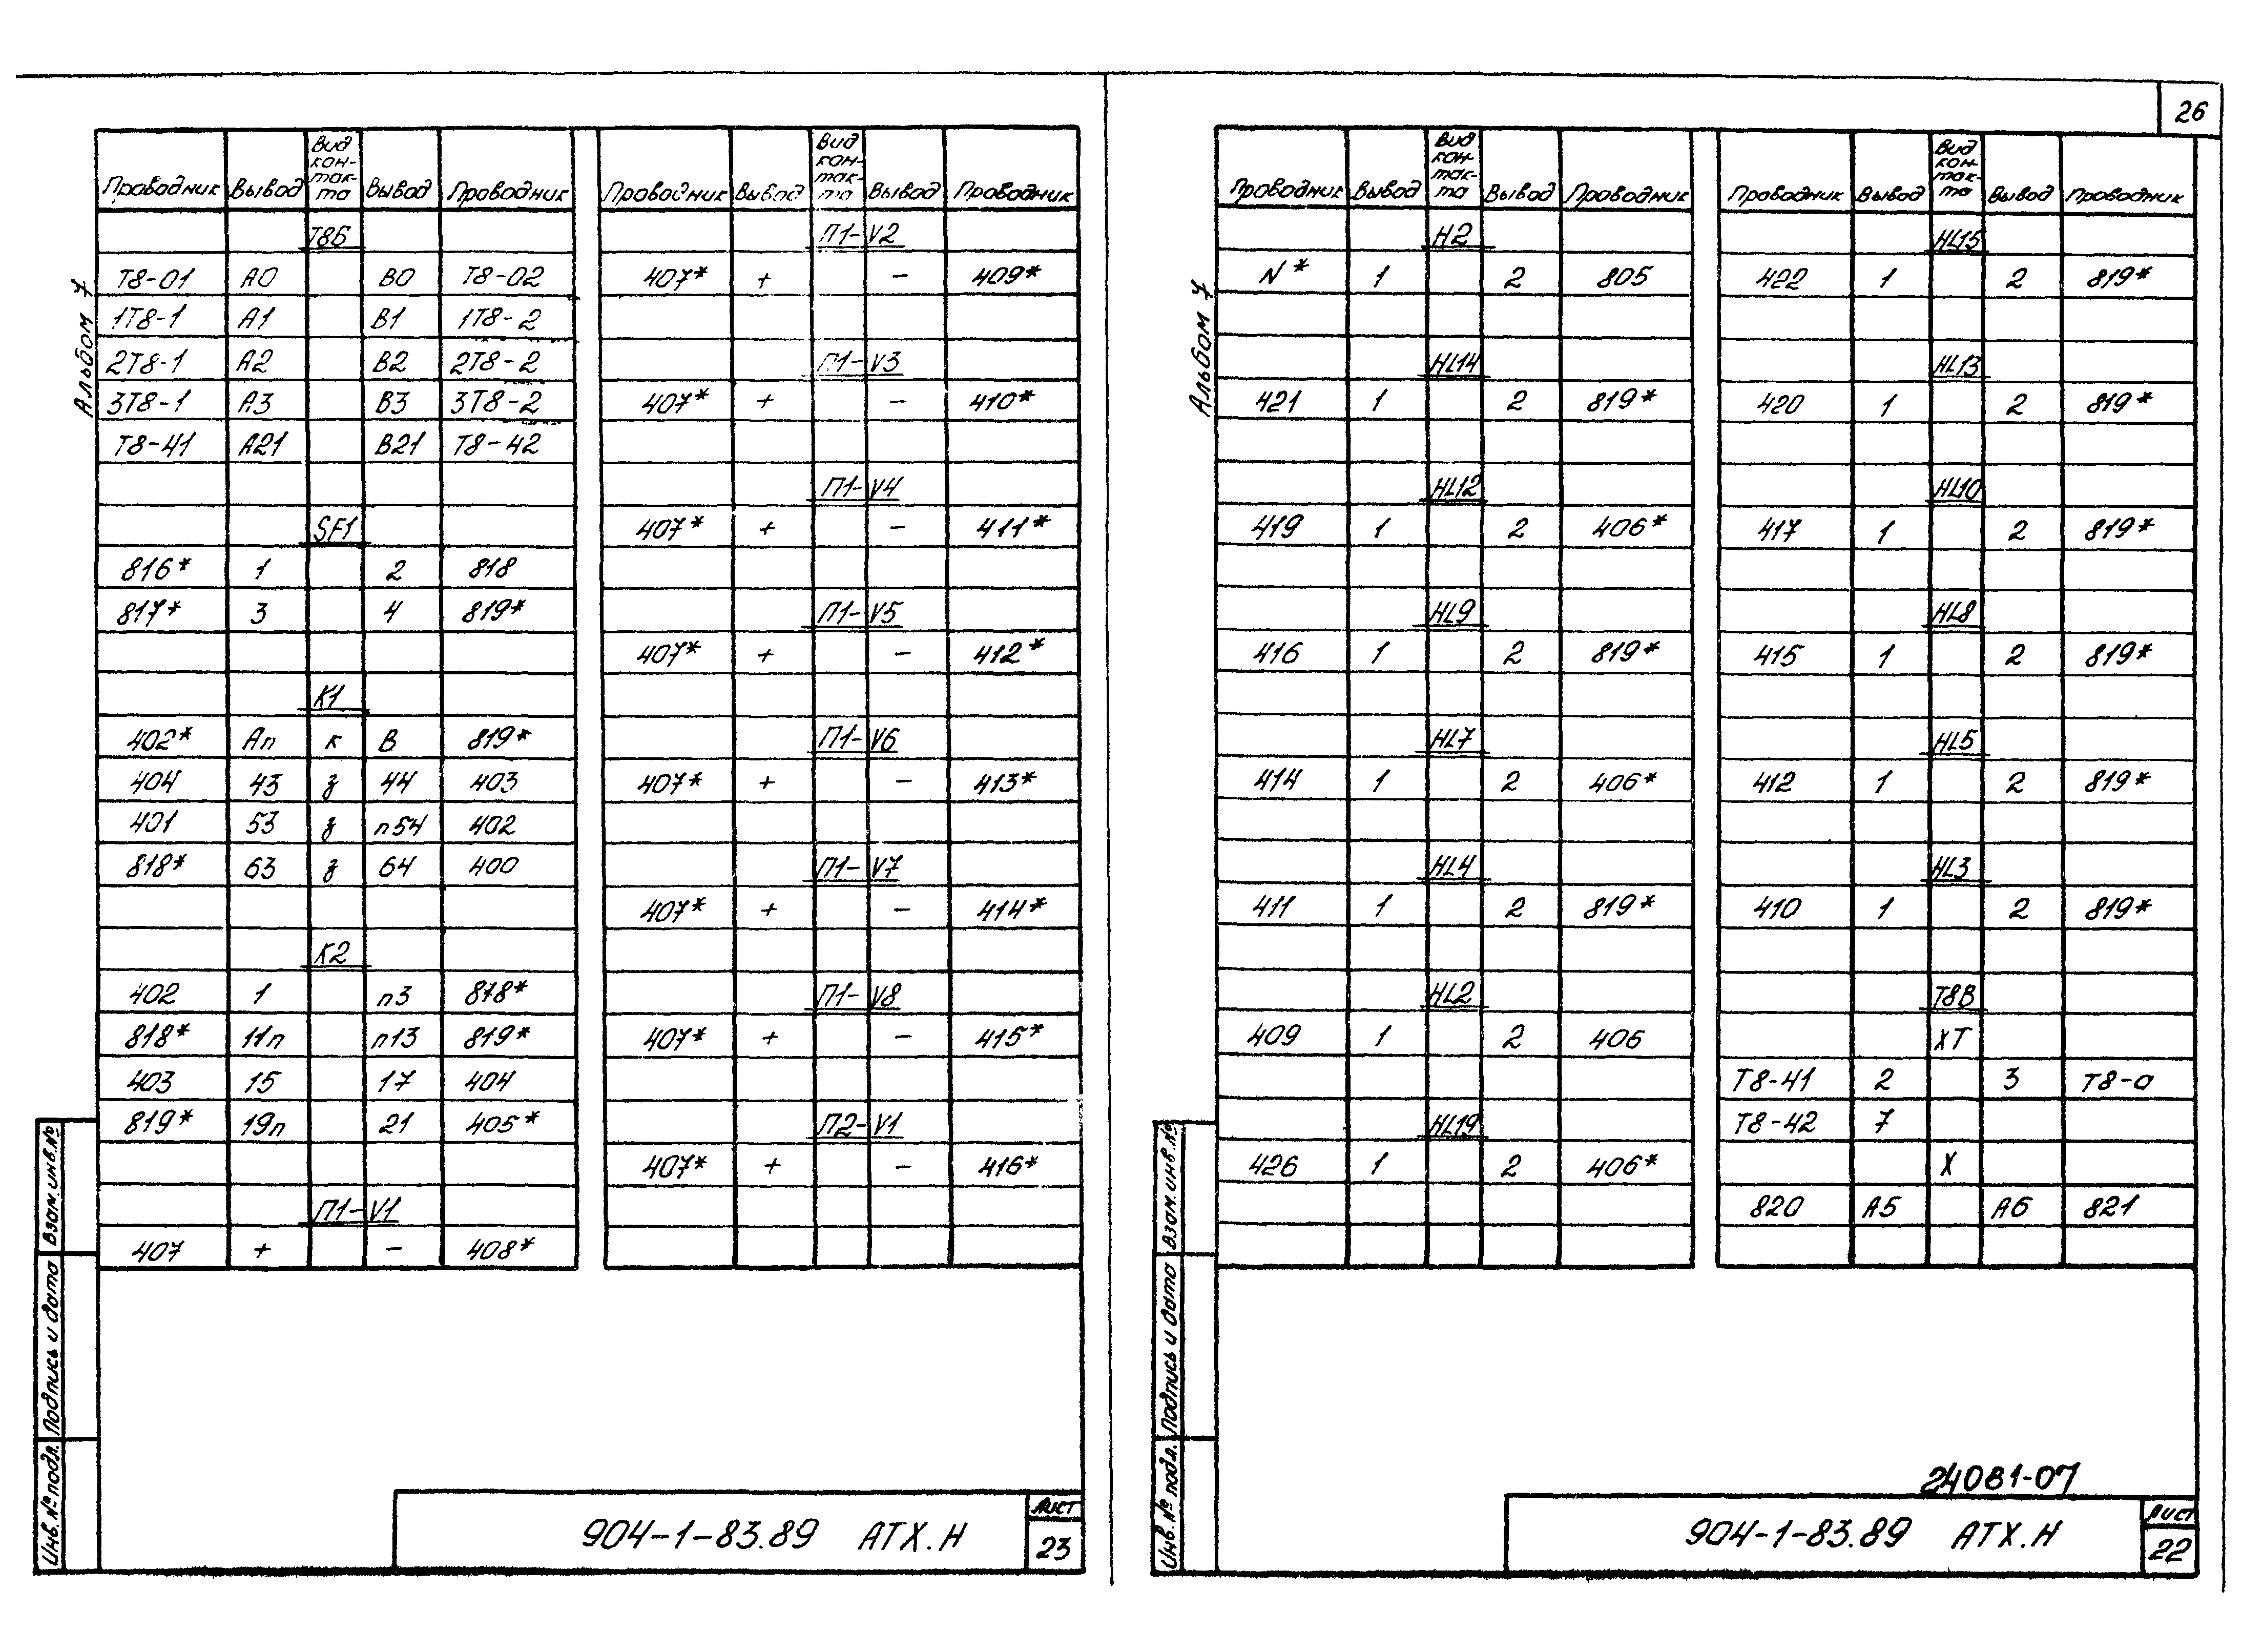 26
Альбом 7
Проводник Вывод Вид кон- так- та Вывод Проводник
Т8Б
Т8-01 А0 В0 Т8-02
1Т8-1 А1 В1 1Т8-2
2Т8-1 А2 В2 2Т8-2
3Т8-1 А3 В3 3Т8-2
Т8-41 А21 В21 Т8-42
SF1
816* 1 2 818
817* 3 4 819*
К1
402* Ап к В 819*
404 43 з 44 403
401 53 з п54 402
818* 63 з 64 400
К2
402 1 п3 818*
818* 11п п13 819*
403 15 17 404
819* 19п 21 405*
П1-V1
407 + – 408*
Проводник Вывод Вид кон- так- та Вывод Проводник
П1-V2
407* + – 409*
П1-V3
407* + – 410*
П1-V4
407* + – 411*
П1-V5
407* + – 412*
П1-V6
407* + – 413*
П1-V7
407* + – 414*
П1-V8
407* + – 415*
П2-V1
407* + – 416*
Взам.инв.№
Подпись и дата
Инв.№ подл.
904-1-83.89 АТХ.Н
Лист
23
Альбом 7
Проводник Вывод Вид кон- так- та Вывод Проводник
Н2
N* 1 2 805
HL14
421 1 2 819*
HL12
419 1 2 406*
HL9
416 1 2 819*
HL7
414 1 2 406*
HL4
411 1 2 819*
HL2
409 1 2 406
HL19
426 1 2 406*
Проводник Вывод Вид кон- так- та Вывод Проводник
HL15
422 1 2 819*
HL13
420 1 2 819*
HL10
417 1 2 819*
HL8
415 1 2 819*
HL5
412 1 2 819*
HL3
410 1 2 819*
Т8В
ХТ
Т8-41 2 3 Т8-0
Т8-42 7
Х
820 А5 А6 821
Взам.инв.№
Подпись и дата
Инв.№ подл.
24081-07
904-1-83.89 АТХ.Н
Лист
22